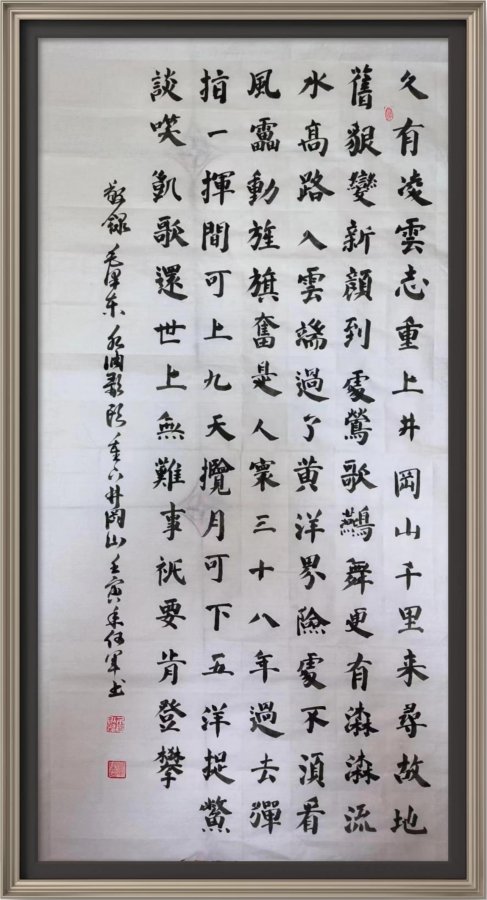 久有凌雲志重上井岡山千里来尋故地
舊貌變新顔到處鶯歌鷰舞更有潺潺流
水高路入雲端過了黄洋界險處不須看
風靁動旌旗奮是人寰三十八年過去彈
指一揮間可上九天攬月可下五洋捉鱉
談笑凱歌還世上無難事祇要肯登攀
敬録毛泽东水调歌头重上井岡山壬寅年任军书